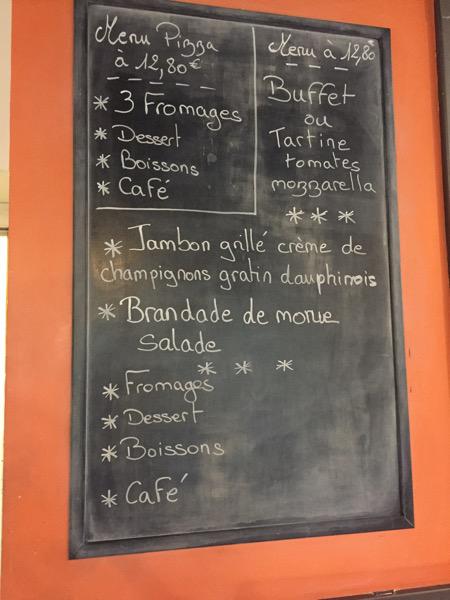 Menu Pizza
à 12,80€
* 3 Fromages
* Dessert
* Boissons
* Café
Menu à 12,80
Buffet
ou
Tartine
tomates
mozzarella
* * *
* Jambon grillé crème de
champignons gratin dauphinois
* Brandade de morue
Salade
* * *
* Fromages
* Dessert
* Boissons
* Café